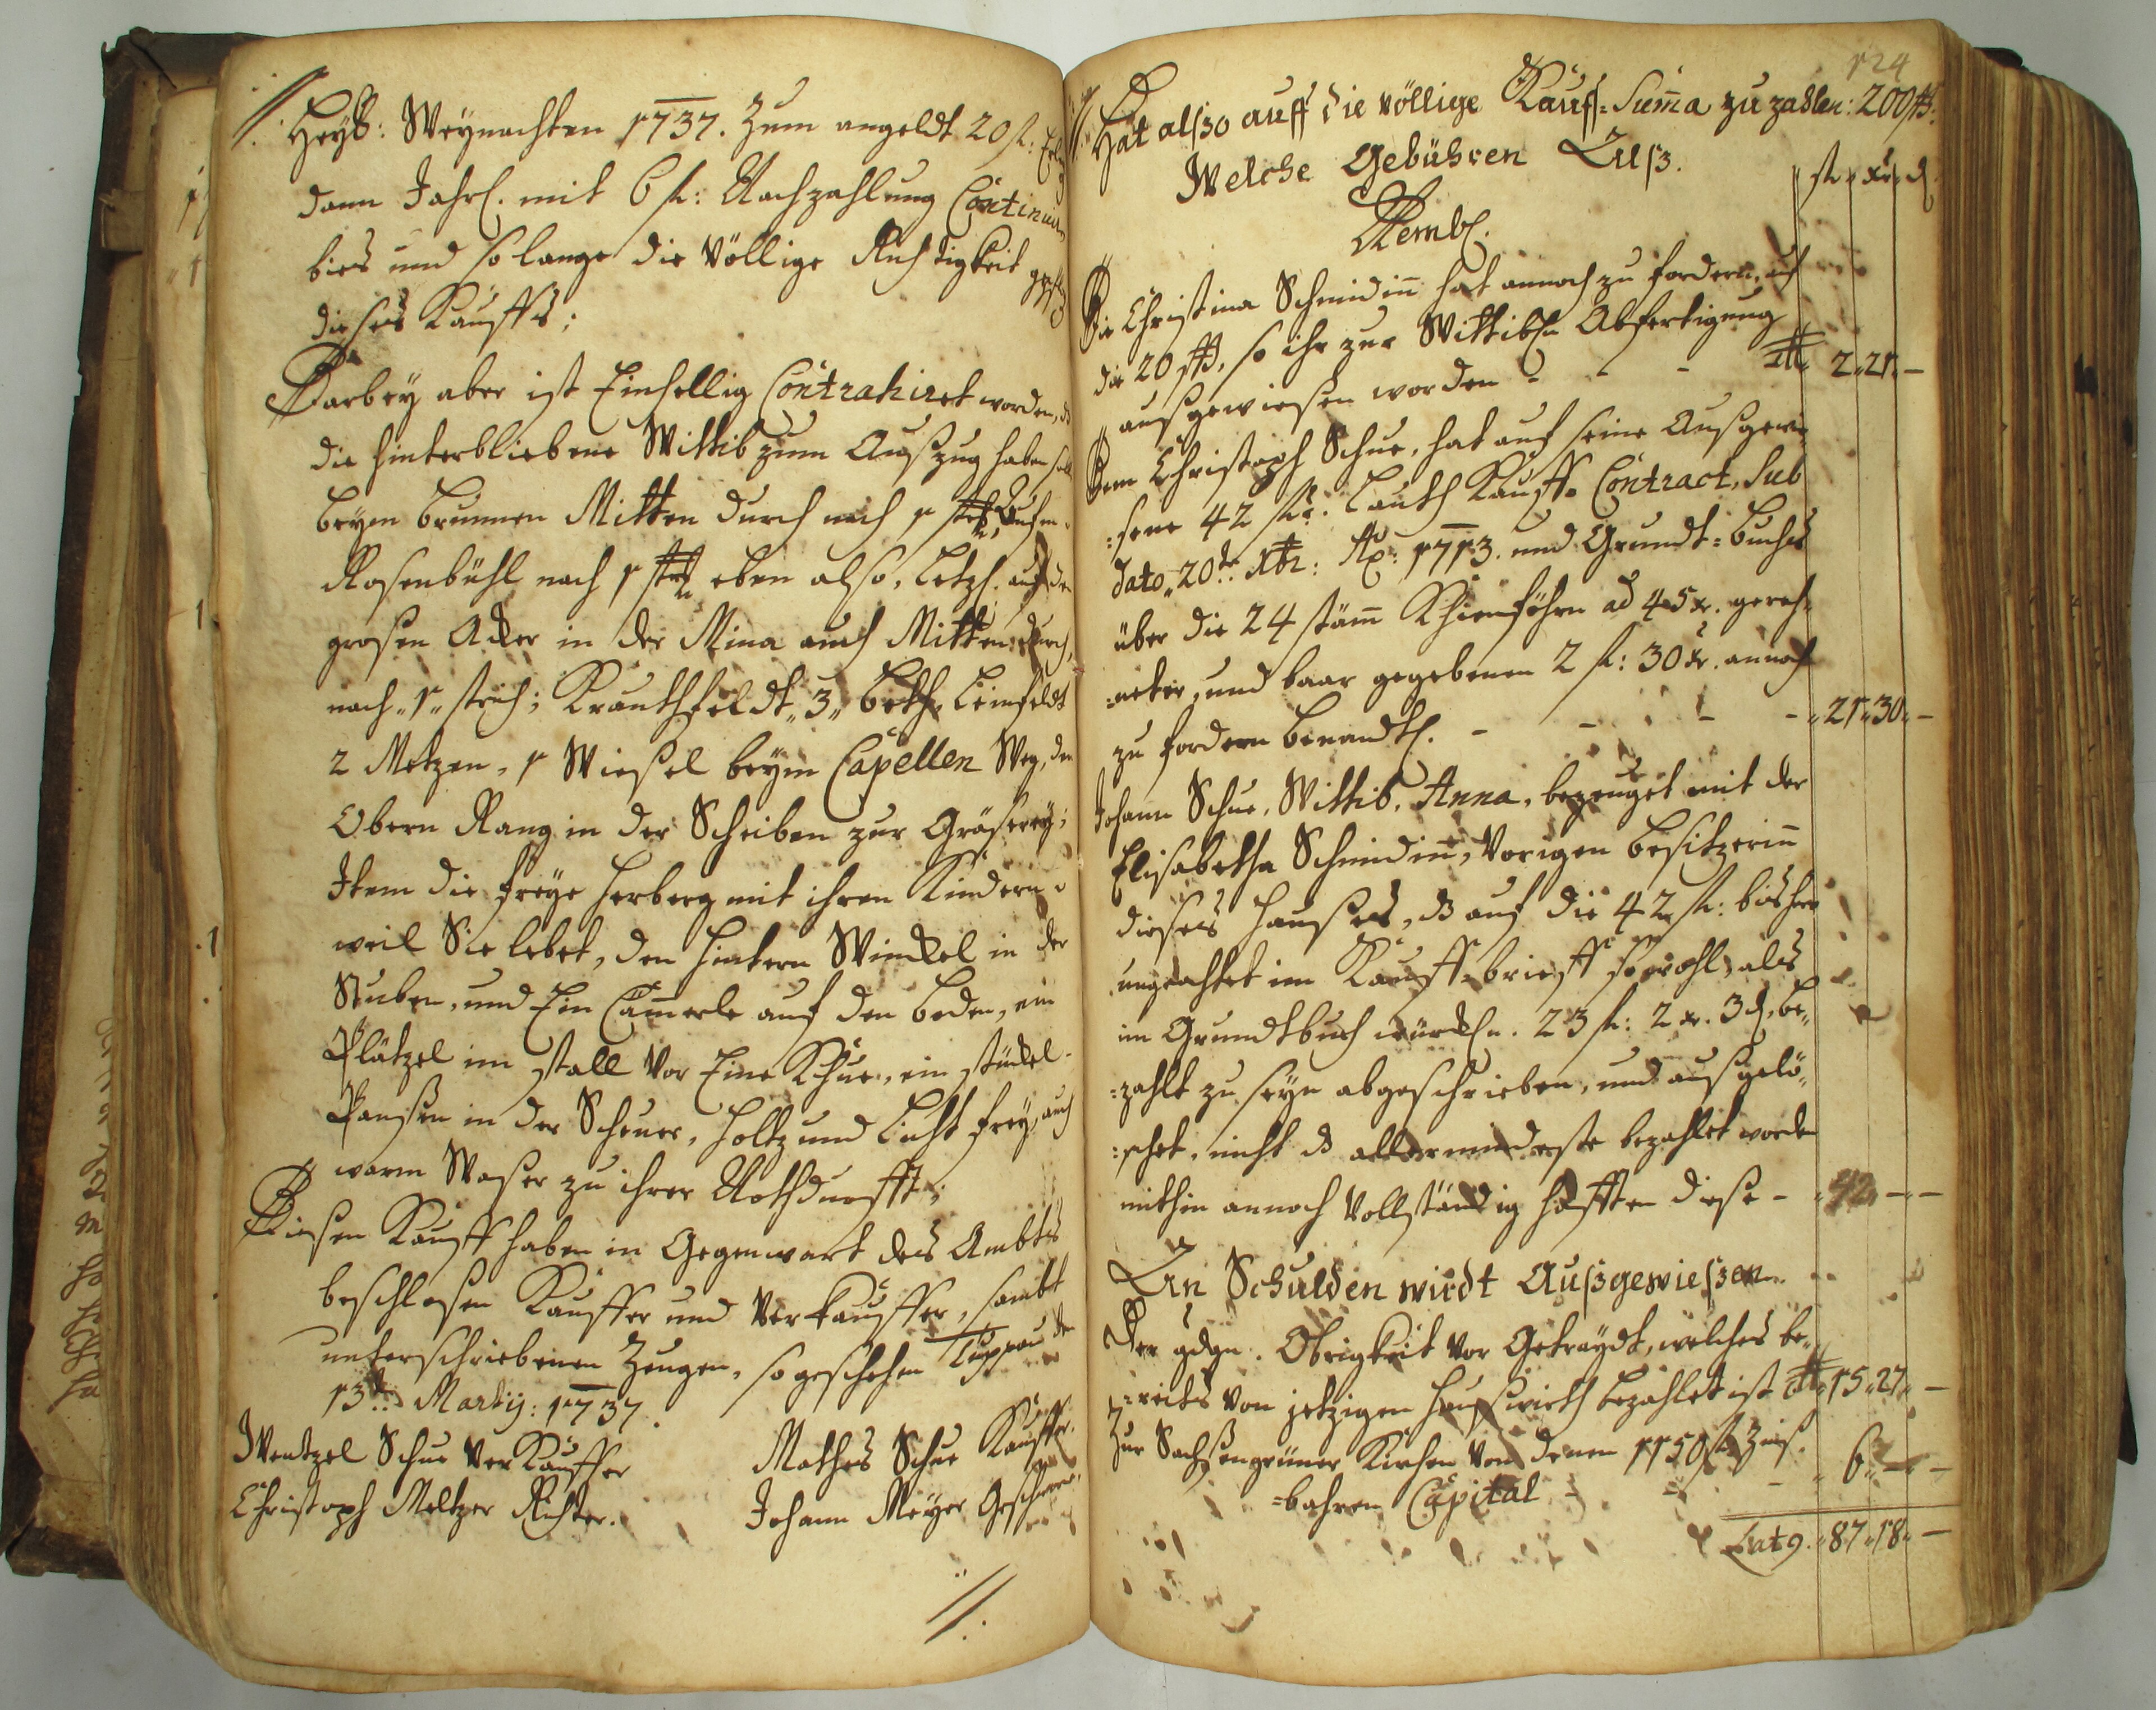 Heyl: Weynachten 1737. Zum angeldt 20 fl:
dann Jahrl. mit 6 fl: Nachzahlung Continuir
bies und so lange die völlige Richtigkeit
dieses Kauffs;
Darbey aber ist Einhellig Contrahiret worden, ds
die hinterbliebene Wittib zum Außzug haben soll
beym brunnen Mitten durch nach 1 strich,
Rosenbühl nach 1 strich eben also, letzl. auf den
grosen Acker in der Mina auch Mitten durch,
nach "1" strich; Krauthfeldt "3" beth, Leinfeldt
2 Metzen, 1 Wiesel beym Capellen Weg, den
Obern Rang in der Scheiben zur Gräserey;
Item die freye herberg mit ihren Kindern
weil Sie lebet, den hintern Winckel in der
Stuben, und Ein Camerle auf den boden, ein
Plätzel im stall vor Eine Khue, ein stückel
Panßen in der Scheuer, holtz und licht frey, auch
warm Waser zu ihrer Nothdurfft;
Diesen Kauff haben in Gegenwart des Ambts
beschlosen Kauffer und Verkauffer, sambt
unterschriebenen Zeugen, so geschehen Luppau den
13ten Martij: 1737.
Wentzel Schue Verkauffer Mathes Schue Kauffer.
Christoph Meltzer Richter. Johann Meyer Geschworn.
124
Hat alßo auff die völlige Kauf=Suma zu zahlen: 200 ßß.
Welche Gebühren Luß.
fl xr d
Rembl.
Die Christina Schmidin hat annoch zu fordern, auf
die 20 ßß, so ihr zur Wittibln Abfertigung
außgewiesen worden - - - 2 " 21 " -
Dem Christoph Schue, hat auf seine Außgewie=
=sene 42 fl: lauth Kauff=Contract, Sub
dato, 20te Xbr: Ao: 1713. und Grundt=buchs
über die 24 stäm Khienföhrn ad 45 xr. gereh=
=neter, und baar gegebenen 2 fl: 30 xr. annoch
zu fordern benandtl. - - - - " 21 " 30 " -
Johann Schue, Wittib, Anna, bezeuget mit der
Elisabetha Schmidin, Vorigen besitzerin
dieses haußes, ds auf die 42 fl: bishero
ungeachtet im Kauff=brieff sowohl, als
im Grundtbuch würckln. 23 fl: 2 xr. 3 d, be=
=zahlt zu seyn abgeschrieben, und außgelö=
=schet, nicht ds allermindeste bezahlet worden
mithin annoch Vollständig hafften diese - " 42 " - " -
An Schulden wirdt Außgewießen.
Der gdgn. Obrigkeit vor Getraydt, welches be=
=reits von jetzigen haußwirth bezahlet ist 15 " 27 " -
Zur Sachsengrüner Kirchen von denen 1150 fl Zins=
=bahren Capital - - - " 6 " - " -
Latg. " 87 " 18 " -